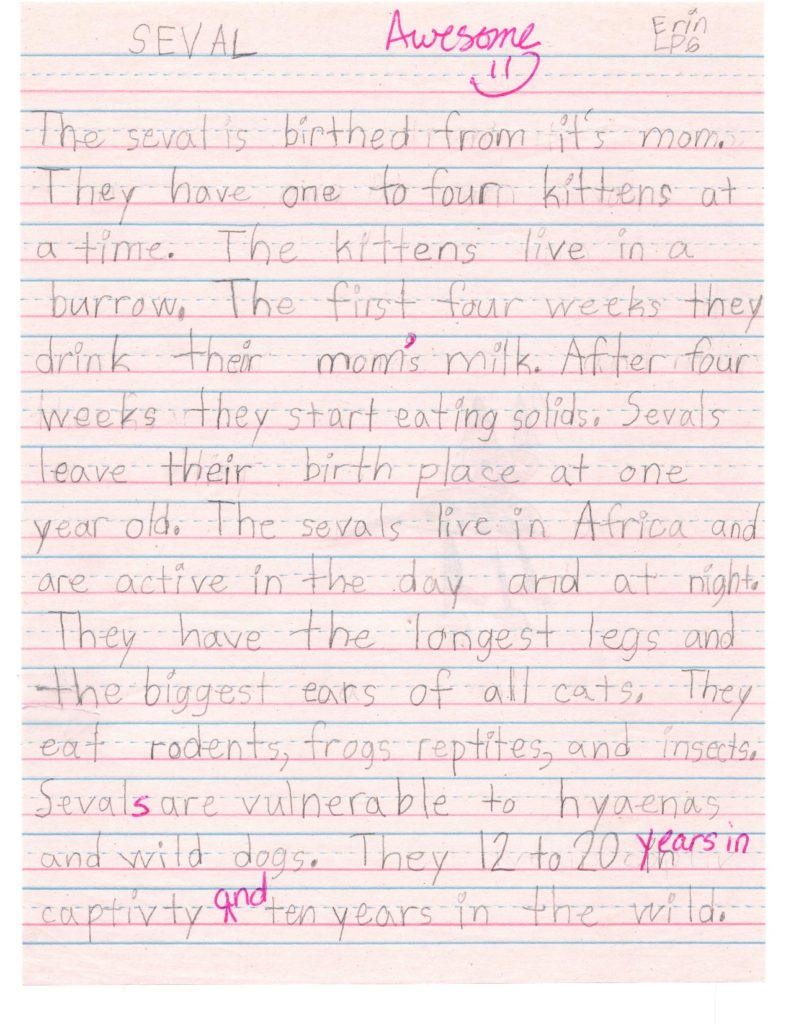 SEVAL Awesome Erin
LP6
The seval is birthed from it's mom.
They have one to four kittens at
a time. The kittens live in a
burrow. The first four weeks they
drink their mom's milk. After four
weeks they start eating solids. Sevals
leave their birth place at one
year old. The sevals live in Africa and
are active in the day and at night.
They have the longest legs and
the biggest ears of all cats. They
eat rodents, frogs reptites, and insects.
Sevals are vulnerable to hyaenas
and wild dogs. They 12 to 20 years in
captivty and ten years in the wild.